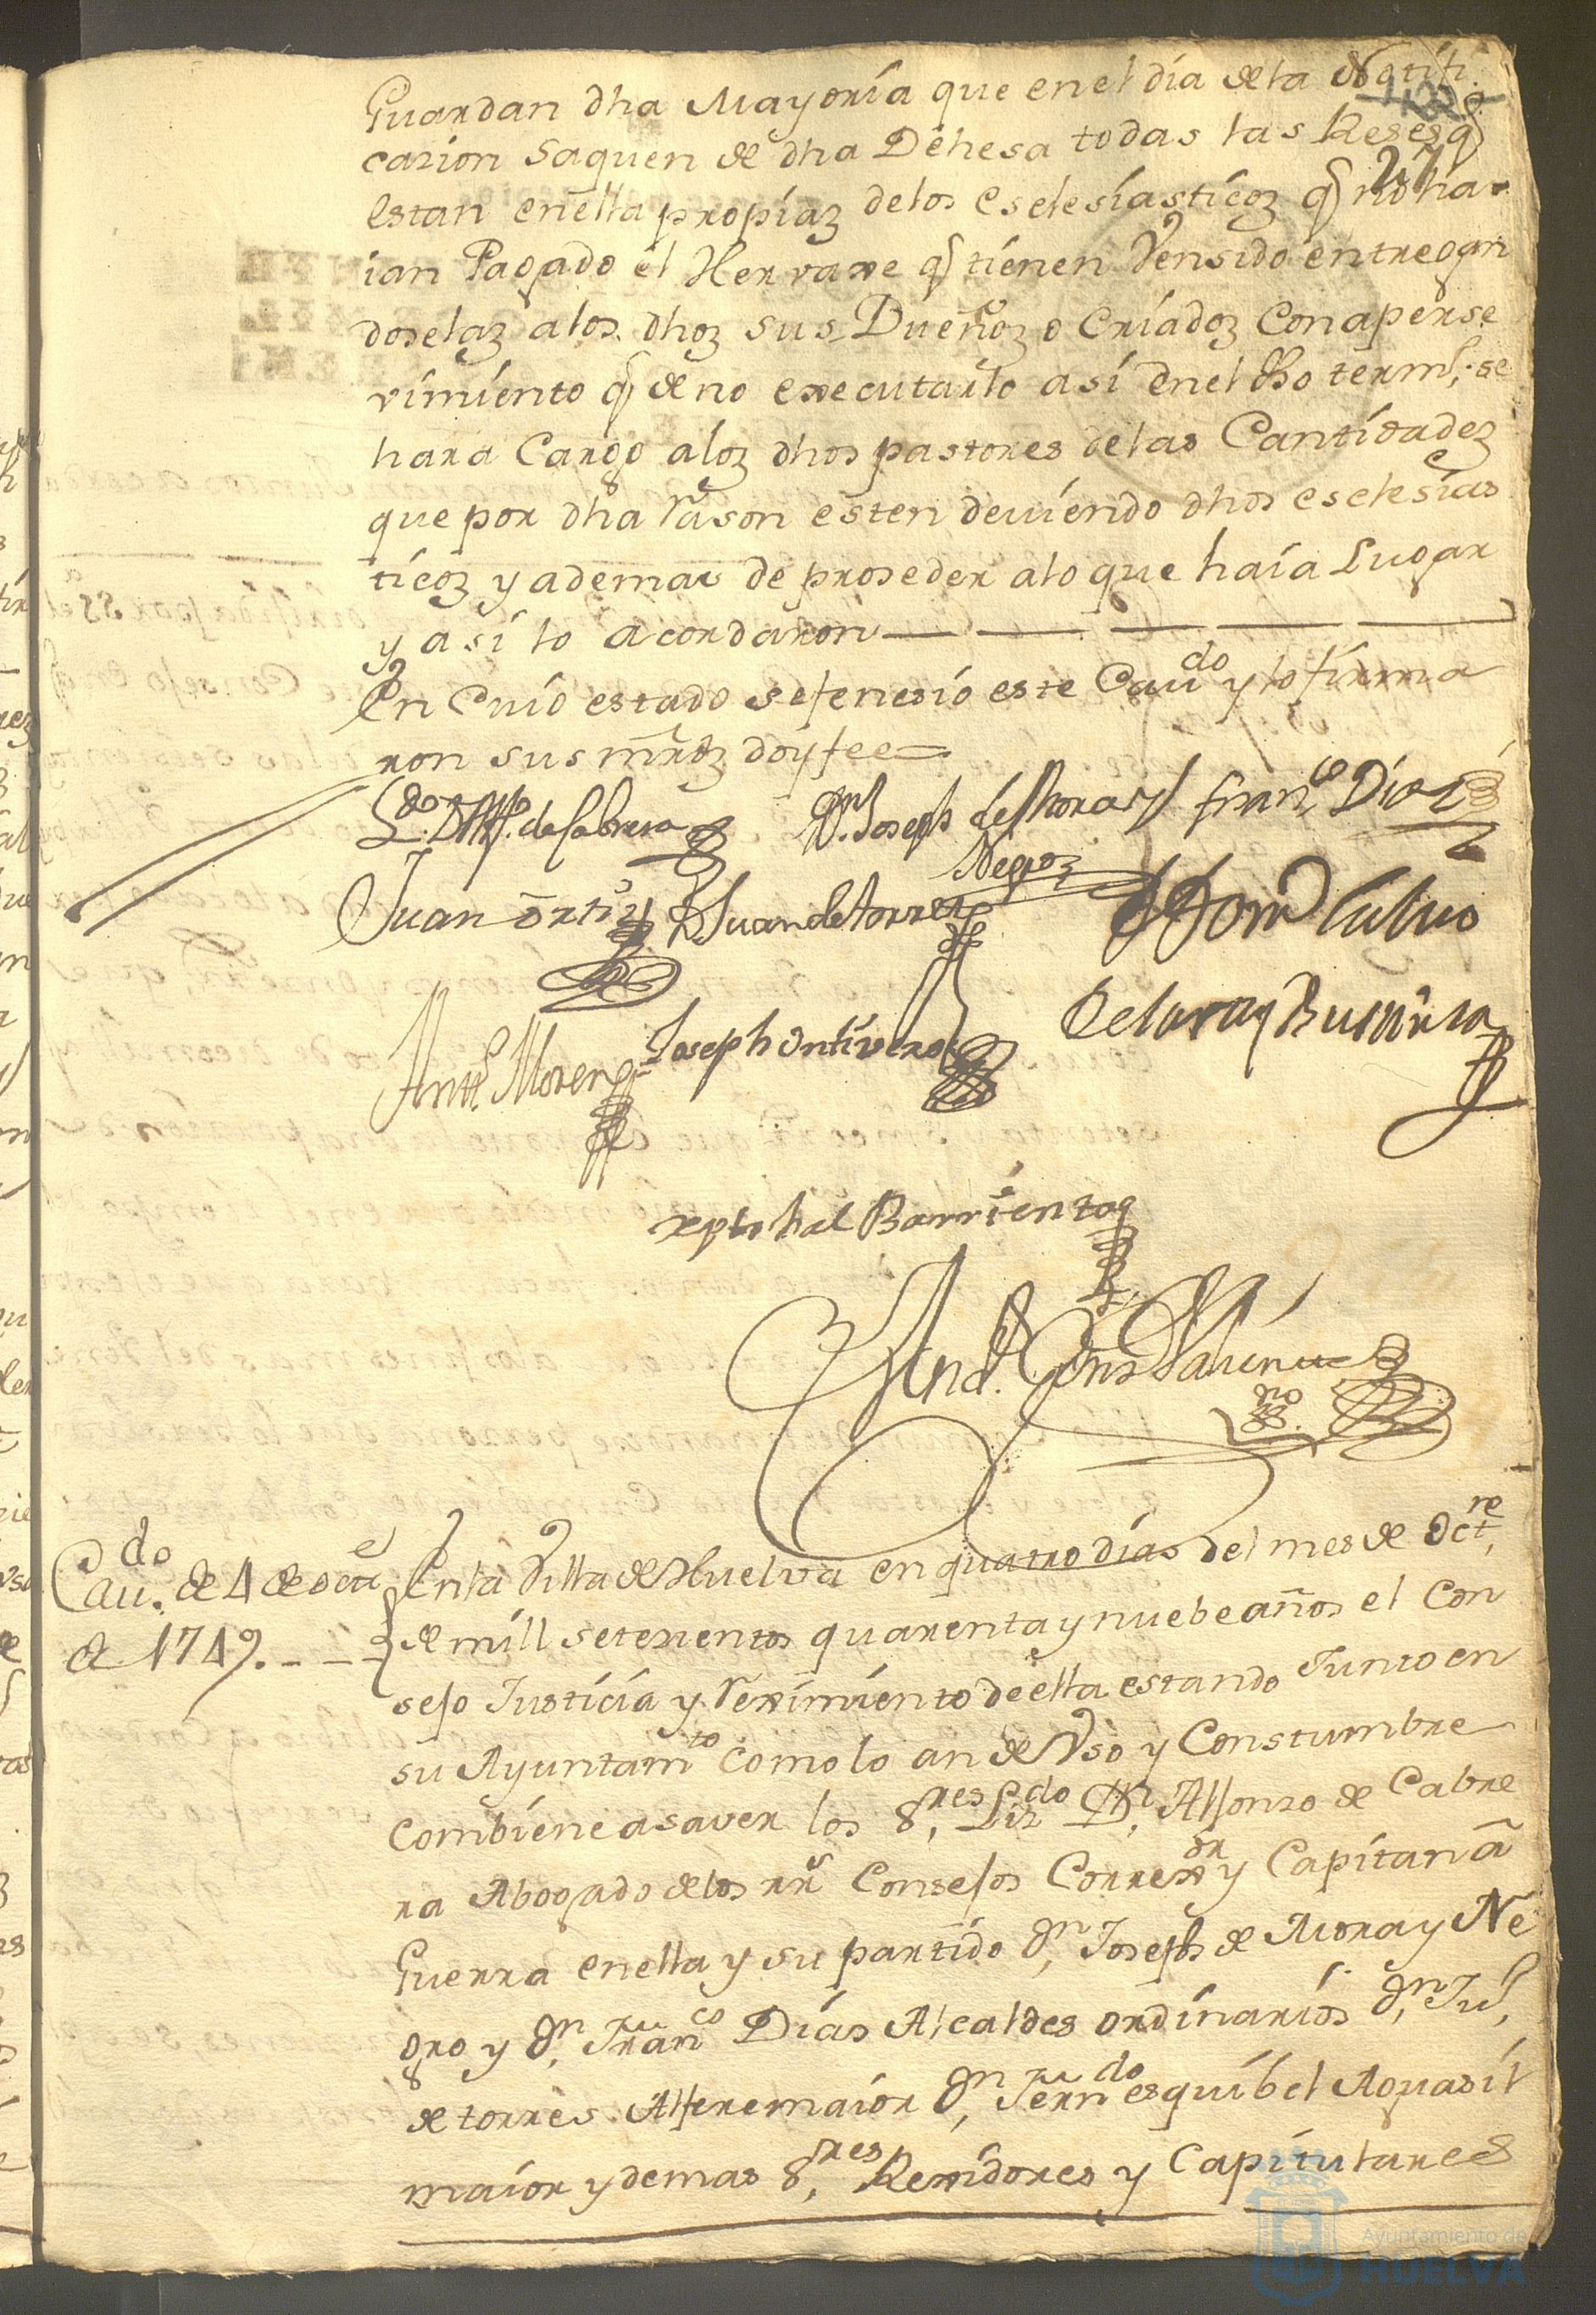 Guardan dha Mayoría que en el dia de la Notifi
casion saquen de dha Dehesa todas las Reses q
27
estan en ella propiaz de los Eselesíasticoz q no ha
ian Pagado el Hervaxe q tienen Vensido entregan
doselaz a los dhoz sus Dueñoz o Críadoz con aperse
vimiento q de no executarlo así en el dho term; se
hara Cargo a loz dhos pastores de las Cantidadez
que por dha rason esten deviendo dhos eselesias
ticoz y ademas de proseder a lo que haia Lugar
y asi lo acordaron
En Cuio estado se fenesio este Cavdo y lo firma
ron sus mrdz doy fee =
Ldo. D Alfo. de Cabrera
Dn. Joseph de Mora y
Negro
Franco Diaz
Juan Ortiz
D Juan de torres
D Domo Calvo
De la ray
Anto. Moreno
Joseph Ontivero
xptobal Barrientos
Cavdo. de 4 de octe
de 1749.
En la Villa de Huelva en quatro dias del mes de Octre,
de mill setesientos quarenta y nuebe años el Con
sejo Justicia y Reximiento de ella estando Junto en
su Ayuntamto como lo an de Vso y Constumbre
Combiene a saver los Sres Lizdo Dn, Alfonso de Cabre
ra Abogado de los rrs Consejos Correxor y Capitan a
Guerra en ella y su partido Dn, Joseph de Mora y Ne
gro y Dn, Franco Días Alcaldes ordinarios Dn, Jun,
de torres Alferemaior Dn, Ferndo esquíbel Aguasil
maior y demas Sres, Rexidores y Capitulares
Ayuntamiento de
HUELVA